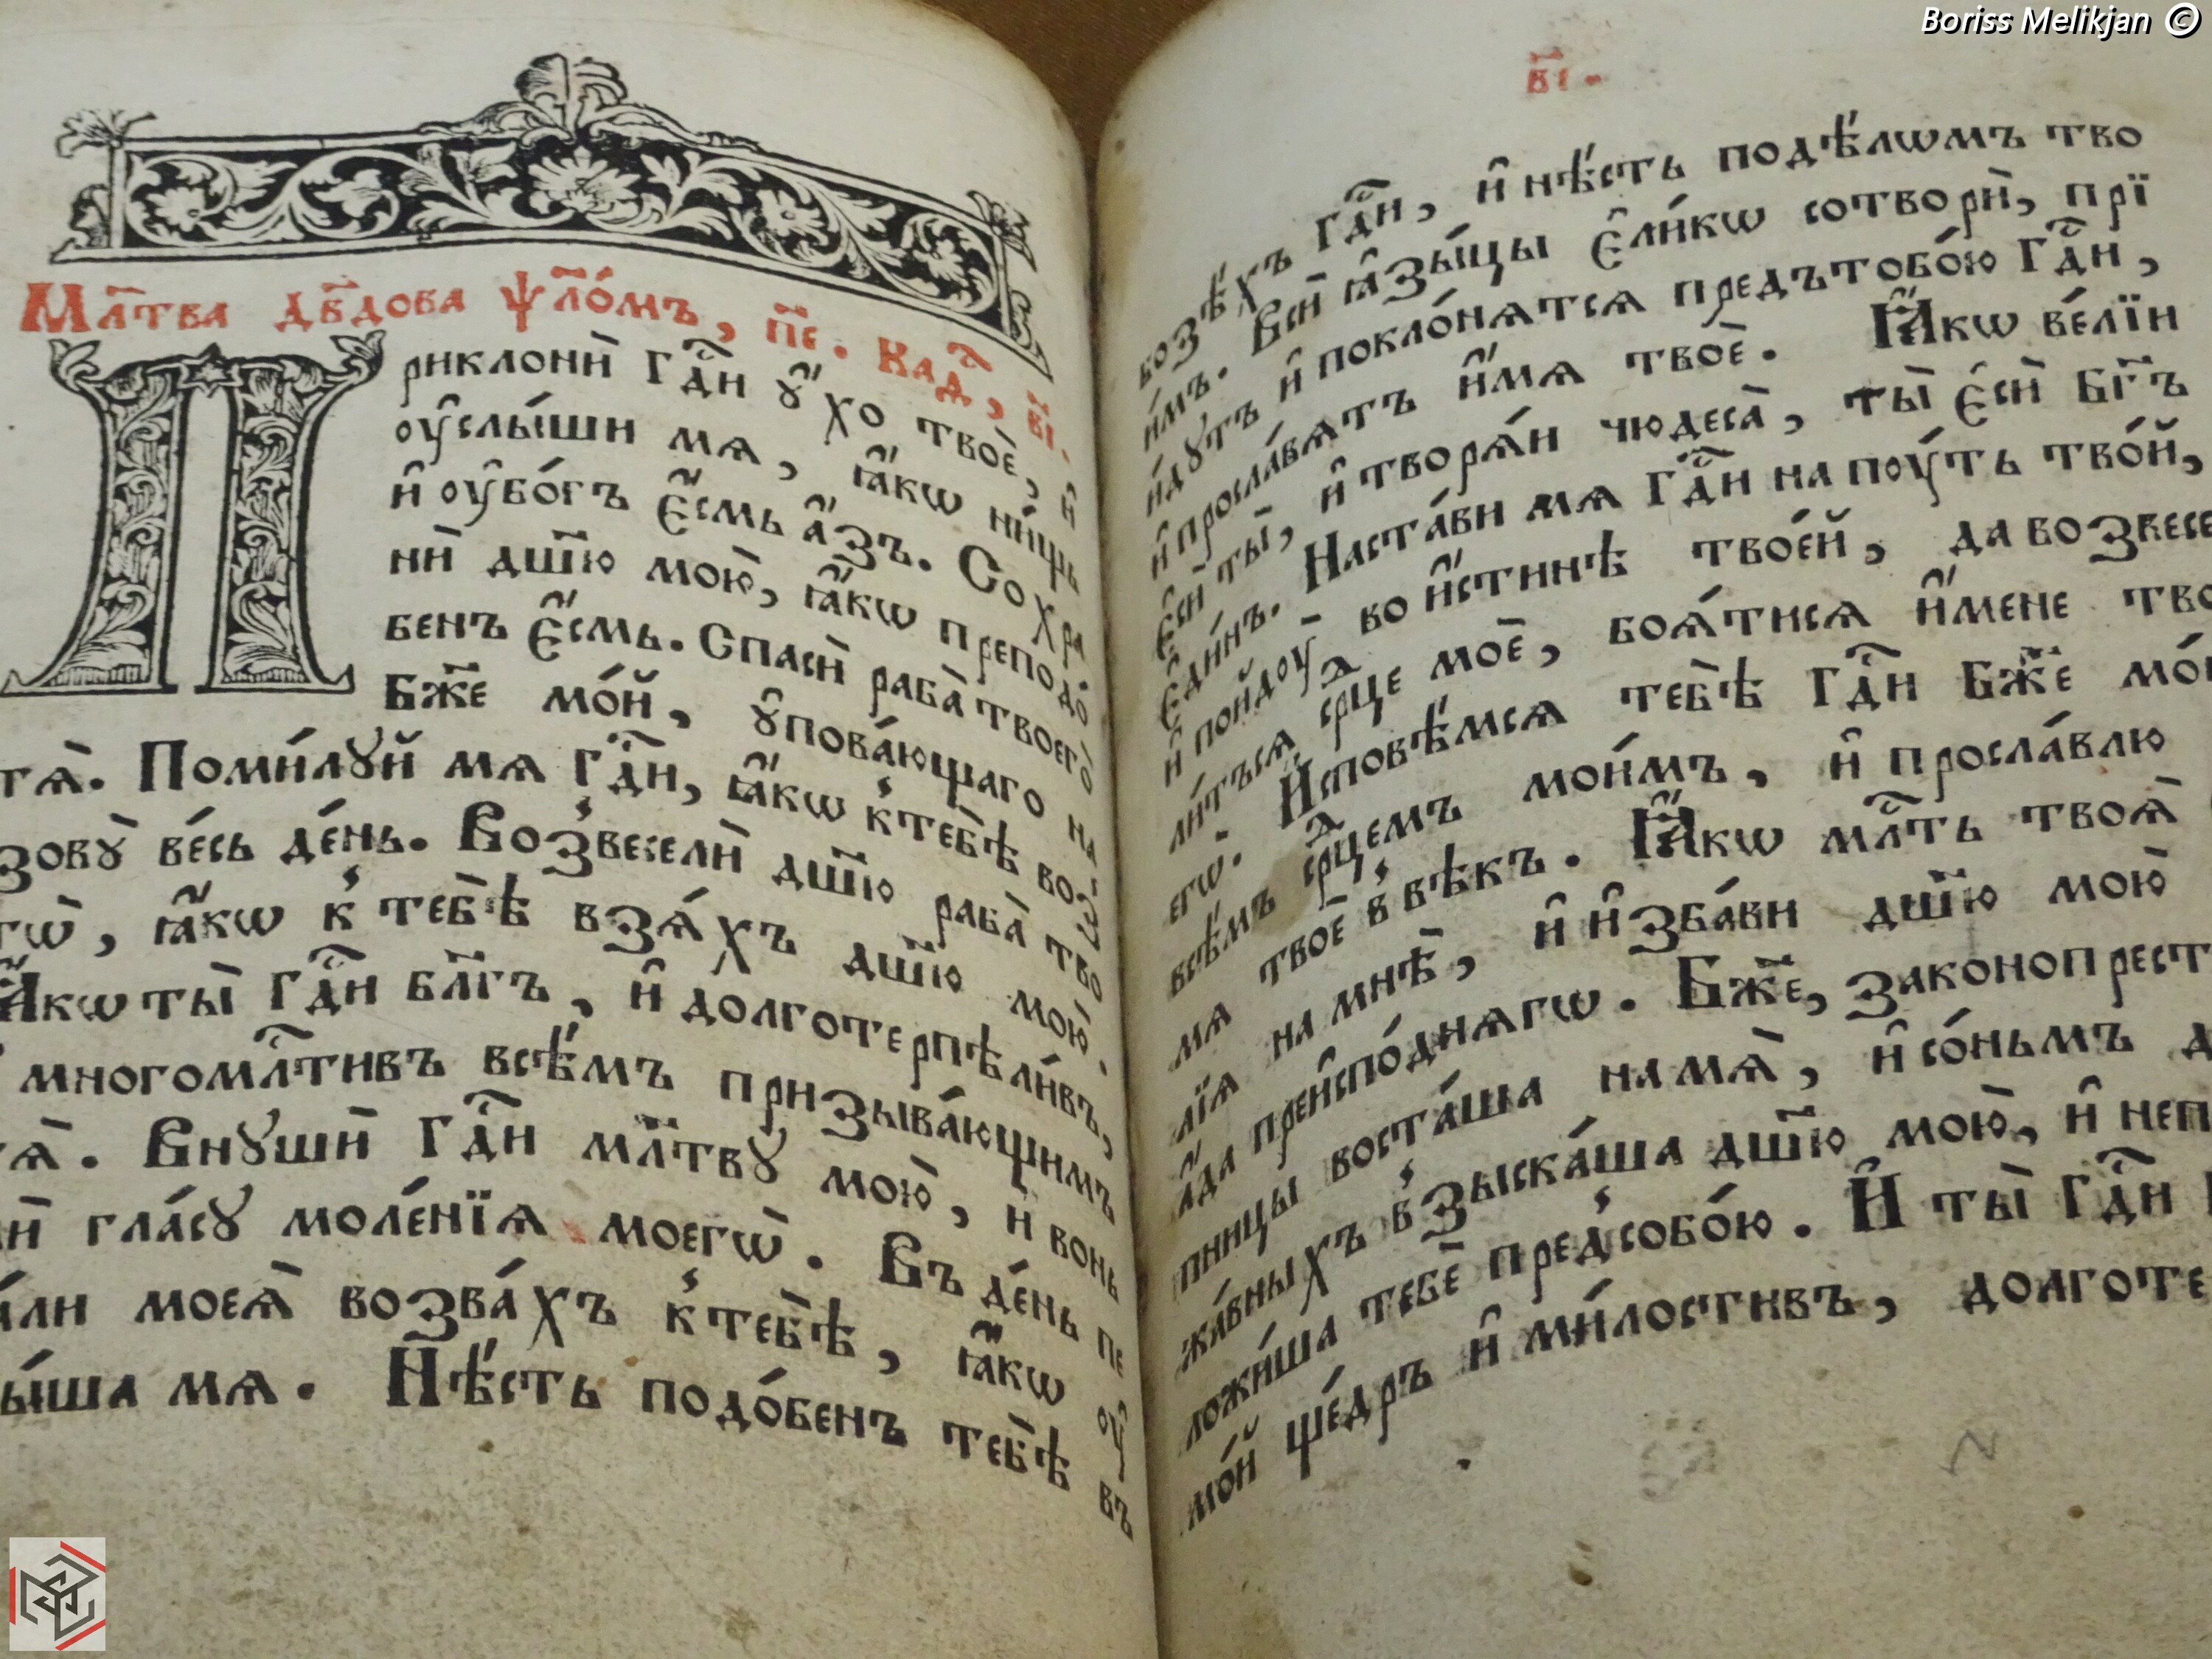 Boriss Melikjan ©
Мл҃тва дв҃дова ѱл҃о́мъ, пе҃. Каѳ, в҃і.
Приклонѝ Гд҃и ᲂу҆́хо твоѐ, и҆
ᲂу҆слы́ши мѧ, ꙗ҆́кѡ ни́щь
и҆ ᲂу҆бо́гъ є҆́смь а҆́зъ. Сохра
нѝ дш҃ꙋ мою̀, ꙗ҆́кѡ преподо́
бенъ є҆́смь. Спасѝ раба̀ твоего̀
Бж҃е мо́й, ᲂу҆пова́ющаго на
тѧ̀. Поми́лꙋй мѧ Гд҃и, ꙗ҆́кѡ к̾тебѣ̀ воз̾
зовꙋ̀ ве́сь де́нь. Воз̾веселѝ дш҃ꙋ раба̀ тво
гѡ̀, ꙗ҆́кѡ к̾ тебѣ̀ взѧ́хъ дш҃ꙋ мою̀.
Ꙗ҆́кѡ ты̀ Гд҃и бл҃гъ, и҆ долготерпѣли́въ,
многомл҃тивъ всѣ́мъ призыва́ющимъ
тѧ̀. Внꙋшѝ Гд҃и мл҃твꙋ мою̀, и҆ вонь
мѝ гла́сꙋ моле́нїѧ моегѡ̀. Въ де́нь пе
ча́ли моеѧ̀ возва́хъ к̾тебѣ̀, ꙗ҆́кѡ ᲂу҆
слы́ша мѧ. Нѣ́сть подо́бенъ тебѣ̀ въ
в҃і.
бозѣ́хъ гд҃и, и҆ нѣ́сть подѣ́лѡмъ тво
и́мъ. Всѝ ꙗ҆зы́цы є҆ли́кѡ сотворѝ, прї
и́дꙋтъ и҆ покло́нѧтсѧ предътобо́ю Гд҃и,
и҆ просла́вѧтъ и҆́мѧ твоѐ. Ꙗ҆́кѡ ве́лїи
є҆сѝ ты̀, и҆ творѧ́и чюдеса̀, ты̀ є҆сѝ Бг҃ъ
є҆ди́нъ. Наста́ви мѧ Гд҃и на пᲂу́ть тво́й,
и҆ пойдᲂу̀ во и҆́стинѣ твое́й, да возвесе
ли́тъсѧ срⷣце моѐ, боѧ́тисѧ и҆́мене тво
егѡ̀. И҆сповѣ́мсѧ тебѣ̀ Гд҃и Бж҃е мо́й
всѣ́мъ срⷣцемъ мои́мъ, и҆ просла́влю
мѧ твоѐ в̾вѣ́къ. Ꙗ҆́кѡ мл҃ть твоѧ̀
лїѧ на мнѣ̀, и҆ и҆зба́ви дш҃ꙋ мою̀
а҆́да преи҆спо́днѧгѡ. Бж҃е, законопрест
пницы воста́ша на мѧ̀, и҆ со́ньмъ д
жа́вныхъ в̾зыска́ша дш҃ꙋ мою̀, и҆ неп
ложи́ша тебѐ пред̾собо́ю. И҆ ты̀ Гд҃и
мо́й ще́дръ и҆ ми́лостивъ, долготе